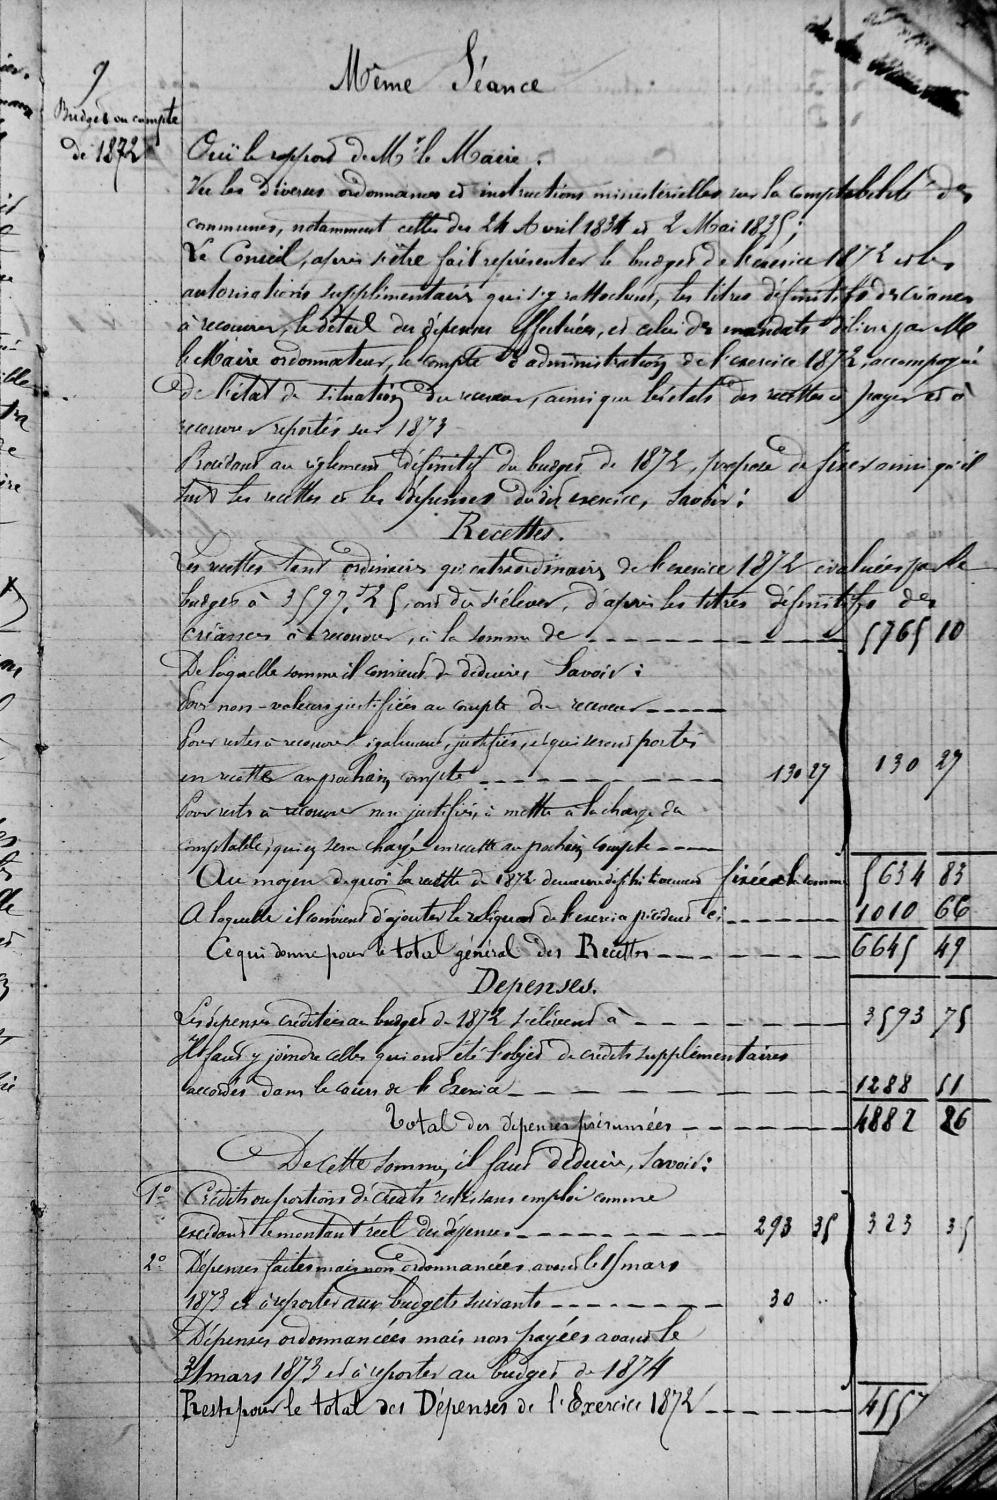 Même Séance
9
Budget ou compte
de 1872
Ouï le rapport de Mr le Maire.
Vu les diverses ordonnances et instructions ministérielles sur la comptabilité des
communes, notamment celles des 24 Avril 1834 et 2 Mai 1835;
Le Conseil, après s'être fait représenter le budget de l'exercice 1872 et les
autorisations supplémentaires qui s'y rattachent, les titres définitifs des créances
à recouvrer, le détail des dépenses effectuées, et celui des mandats délivrés par Mr
le Maire ordonnateur, le compte d'administration de l'exercice 1872, accompagné
de l'état de situation du receveur, ainsi que les états des restes à payer et à
recouvrer reportés sur 1873
Procédant au règlement définitif du budget de 1872, propose de fixer ainsi qu'il
suit les recettes et les dépenses dudit exercice, Savoir:
Recettes.
Les recettes tant ordinaires qu'extraordinaires de l'exercice 1872 évaluées par le
budget à 3597,f25, ont dû s'élever, d'après les titres définitifs des
créances à recouvrer, à la somme de 5765 10
De laquelle somme il convient de déduire, Savoir:
Pour non-valeurs justifiées au compte du receveur
Pour restes à recouvrer également justifiés, et qui seront portés
en recette au prochain compte 130 27 130 27
Pour restes à recouvrer non justifiés, à mettre à la charge du
comptable, qui en sera chargé en recette au prochain compte
Au moyen de quoi la recette de 1872 demeure définitivement fixée à la somme 5634 83
A laquelle il convient d'ajouter le reliquat de l'exercice précédent ci 1010 66
Ce qui donne pour le total général des Recettes 6645 49
Dépenses.
Les dépenses créditées au budget de 1872 s'élèvent à 3593 75
Il faut y joindre celles qui ont été l'objet de crédits supplémentaires
accordés dans le cours de l'Exercice 1288 51
Total des dépenses présumées 4882 26
De cette somme, il faut déduire, Savoir:
1o Crédits ou portions de crédits restés sans emploi comme
excédant le montant réel des dépenses 293 35 323 35
2o Dépenses faites mais non ordonnancées avant le 15 mars
1873 et à reporter aux budgets suivants 30 ..
Dépenses ordonnancées mais non payées avant le
31 mars 1873 et à reporter au budget de 1874
Reste pour le total des Dépenses de l'Exercice 1872 4557